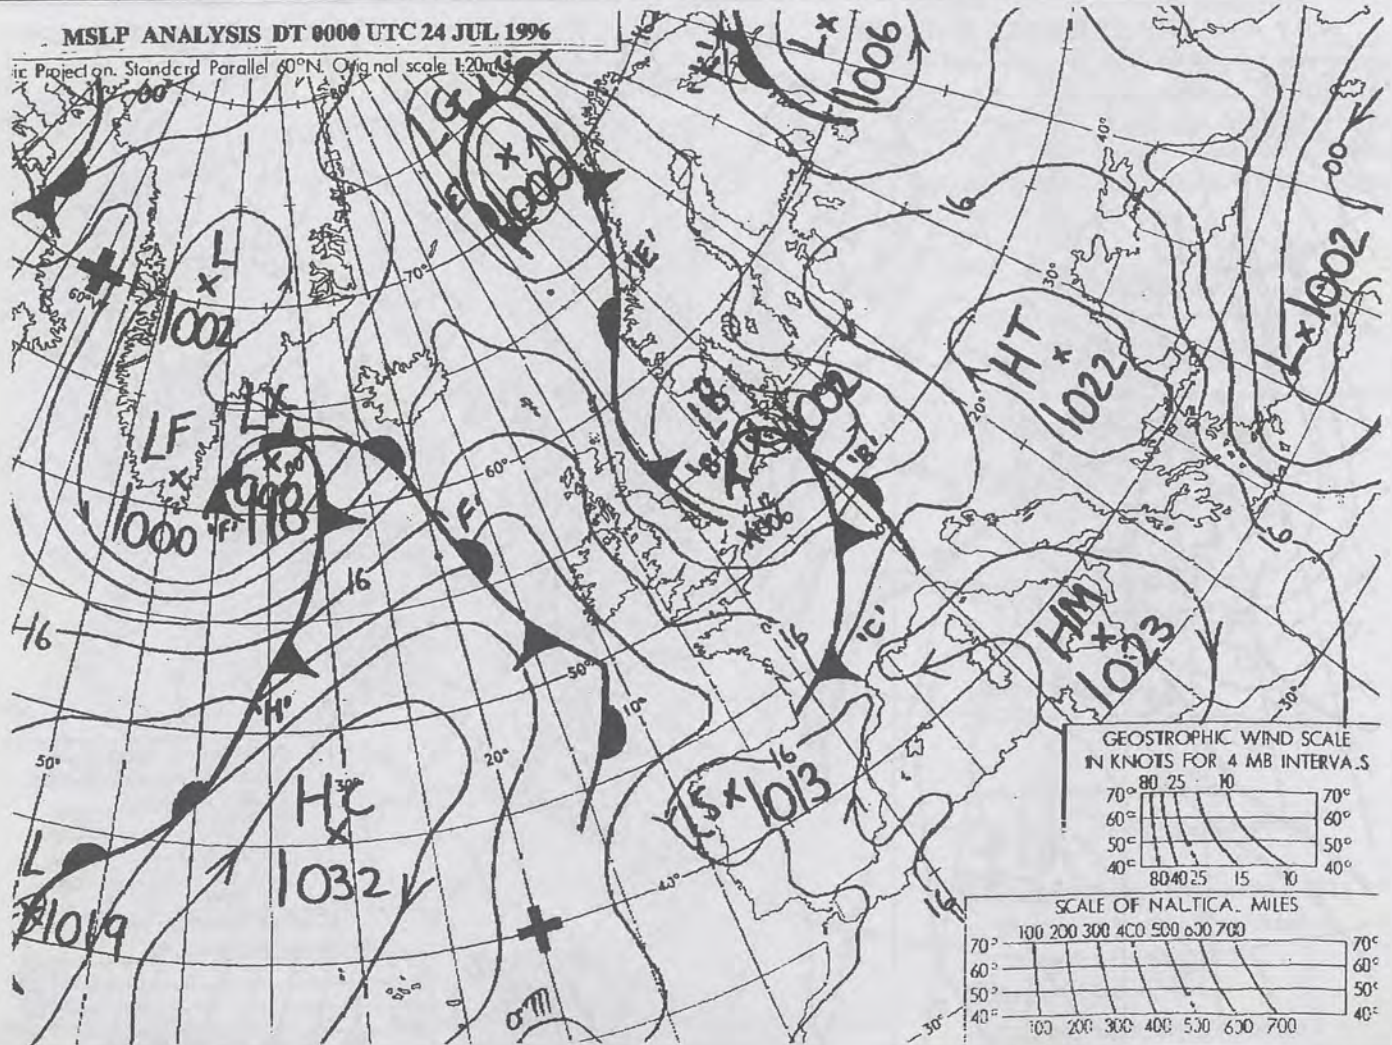 MSLP ANALYSIS DT 0000 UTC 24 JUL 1996
ic Projection. Standard Parallel 60°N. Original scale 1:20m
L
1006
60°
LG
1000
'E'
'E'
40°
16
00
L
1002
L
1002
60°
70°
HT
1022
30°
20°
LF
1000
LX
998
'F'
'F'
LB
1002
'B'
'B'
60°
16
16
16
HM
1023
16
'C'
50°
10°
'H'
50°
20°
30°
HC
1032
L
1019
16
LS
1013
40°
16
30°
30°
GEOSTROPHIC WIND SCALE
IN KNOTS FOR 4 MB INTERVALS
80 25 10
70° 70°
60° 60°
50° 50°
40° 40°
80 40 25 15 10
SCALE OF NAUTICAL MILES
100 200 300 400 500 600 700
70° 70°
60° 60°
50° 50°
40° 40°
100 200 300 400 500 600 700